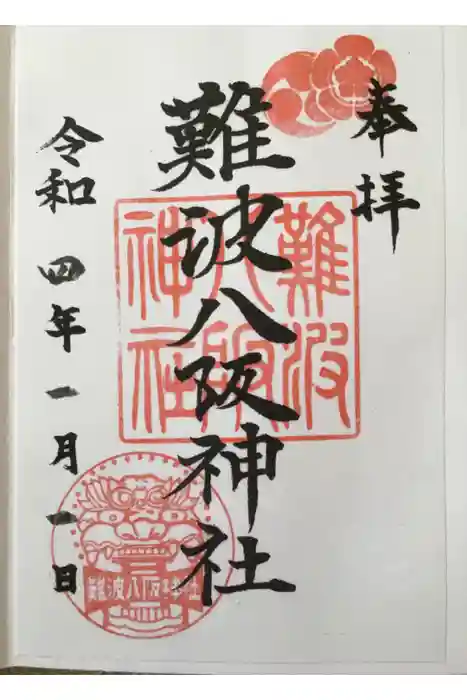 奉拝
難波八阪神社
令和四年一月一日
難波
八阪
神社
難波八阪神社